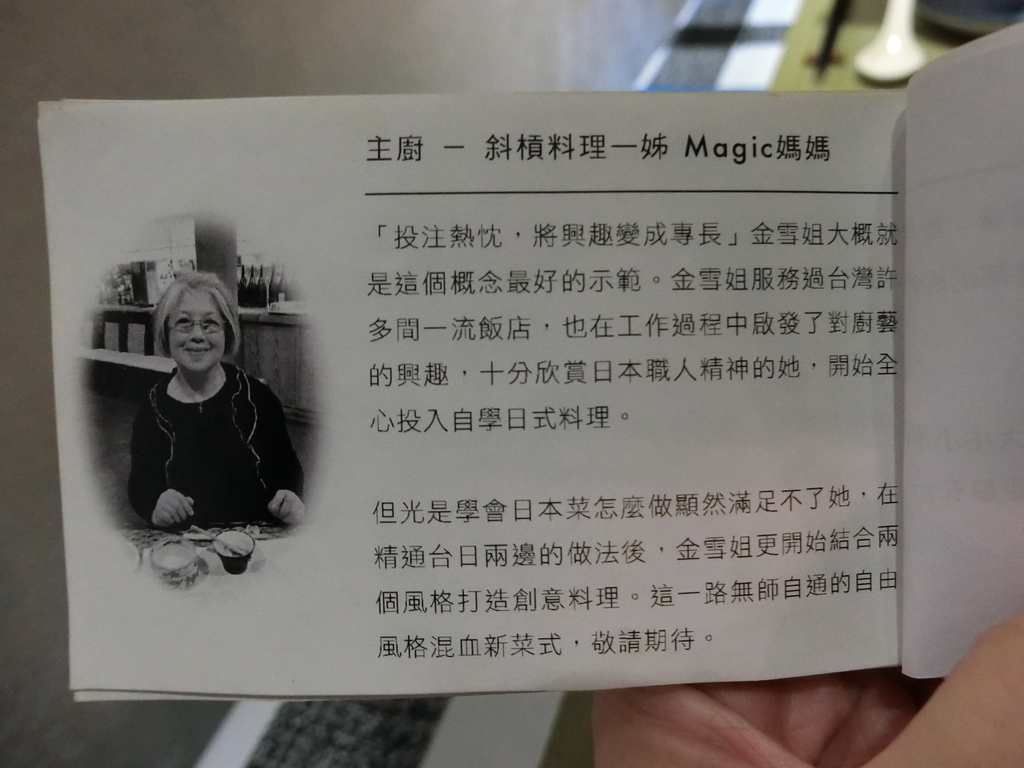 主廚 － 斜槓料理一姊 Magic媽媽
「投注熱忱，將興趣變成專長」金雪姐大概就
是這個概念最好的示範。金雪姐服務過台灣許
多間一流飯店，也在工作過程中啟發了對廚藝
的興趣，十分欣賞日本職人精神的她，開始全
心投入自學日式料理。
但光是學會日本菜怎麼做顯然滿足不了她，在
精通台日兩邊的做法後，金雪姐更開始結合兩
個風格打造創意料理。這一路無師自通的自由
風格混血新菜式，敬請期待。